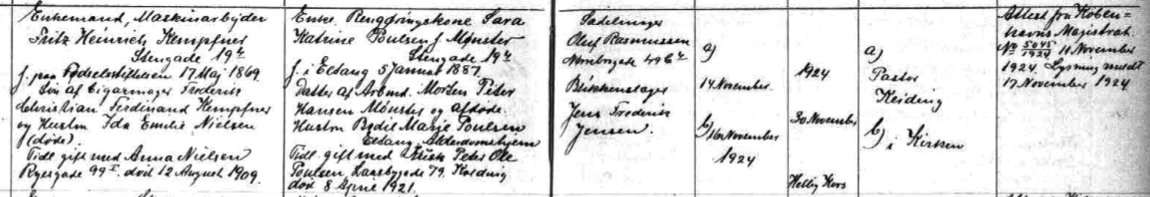 Enkemand, Maskinarbejder
Fritz Heinrich Kempfner
Stengade 19⁴
f. paa Fødselsstiftelsen 17 Maj 1869
Søn af Cigarmager Frederik
Christian Ferdinand Kempfner
og Hustru Ida Emilie Nielsen
(døde).
Tidl. gift med Anna Nielsen
Ryesgade 99ᴵ. død 12 August 1909.
Enke. Rengøringskone Sara
Katrine Poulsen f. Mønster
Stengade 19⁴
f. i Eltang 5 Januar 1887
Datter af Arbmd. Morten Peter
Hansen Mønster og afdøde
Hustru Bodil Marie Poulsen
Eltang Alderdomshjem
Tidl. gift med Peter Ole
Poulsen, 79. Kolding
død 8 April 1921.
Sadelmager
Oluf Rasmussen
49 6
Blikkenslager
Jens Frederik
Jensen.
a)
14 November.
b) 16 November
1924
1924
30 November
Hellig Kors
a)
Pastor
Heiding
b) i Kirken
Attest fra Køben=
havns Magistrat
No 5045/1924 11 November
1924 Lysning
17 November 1924